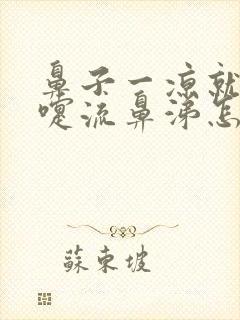 鼻子一凉就
嚏流鼻涕怎
蘇東坡